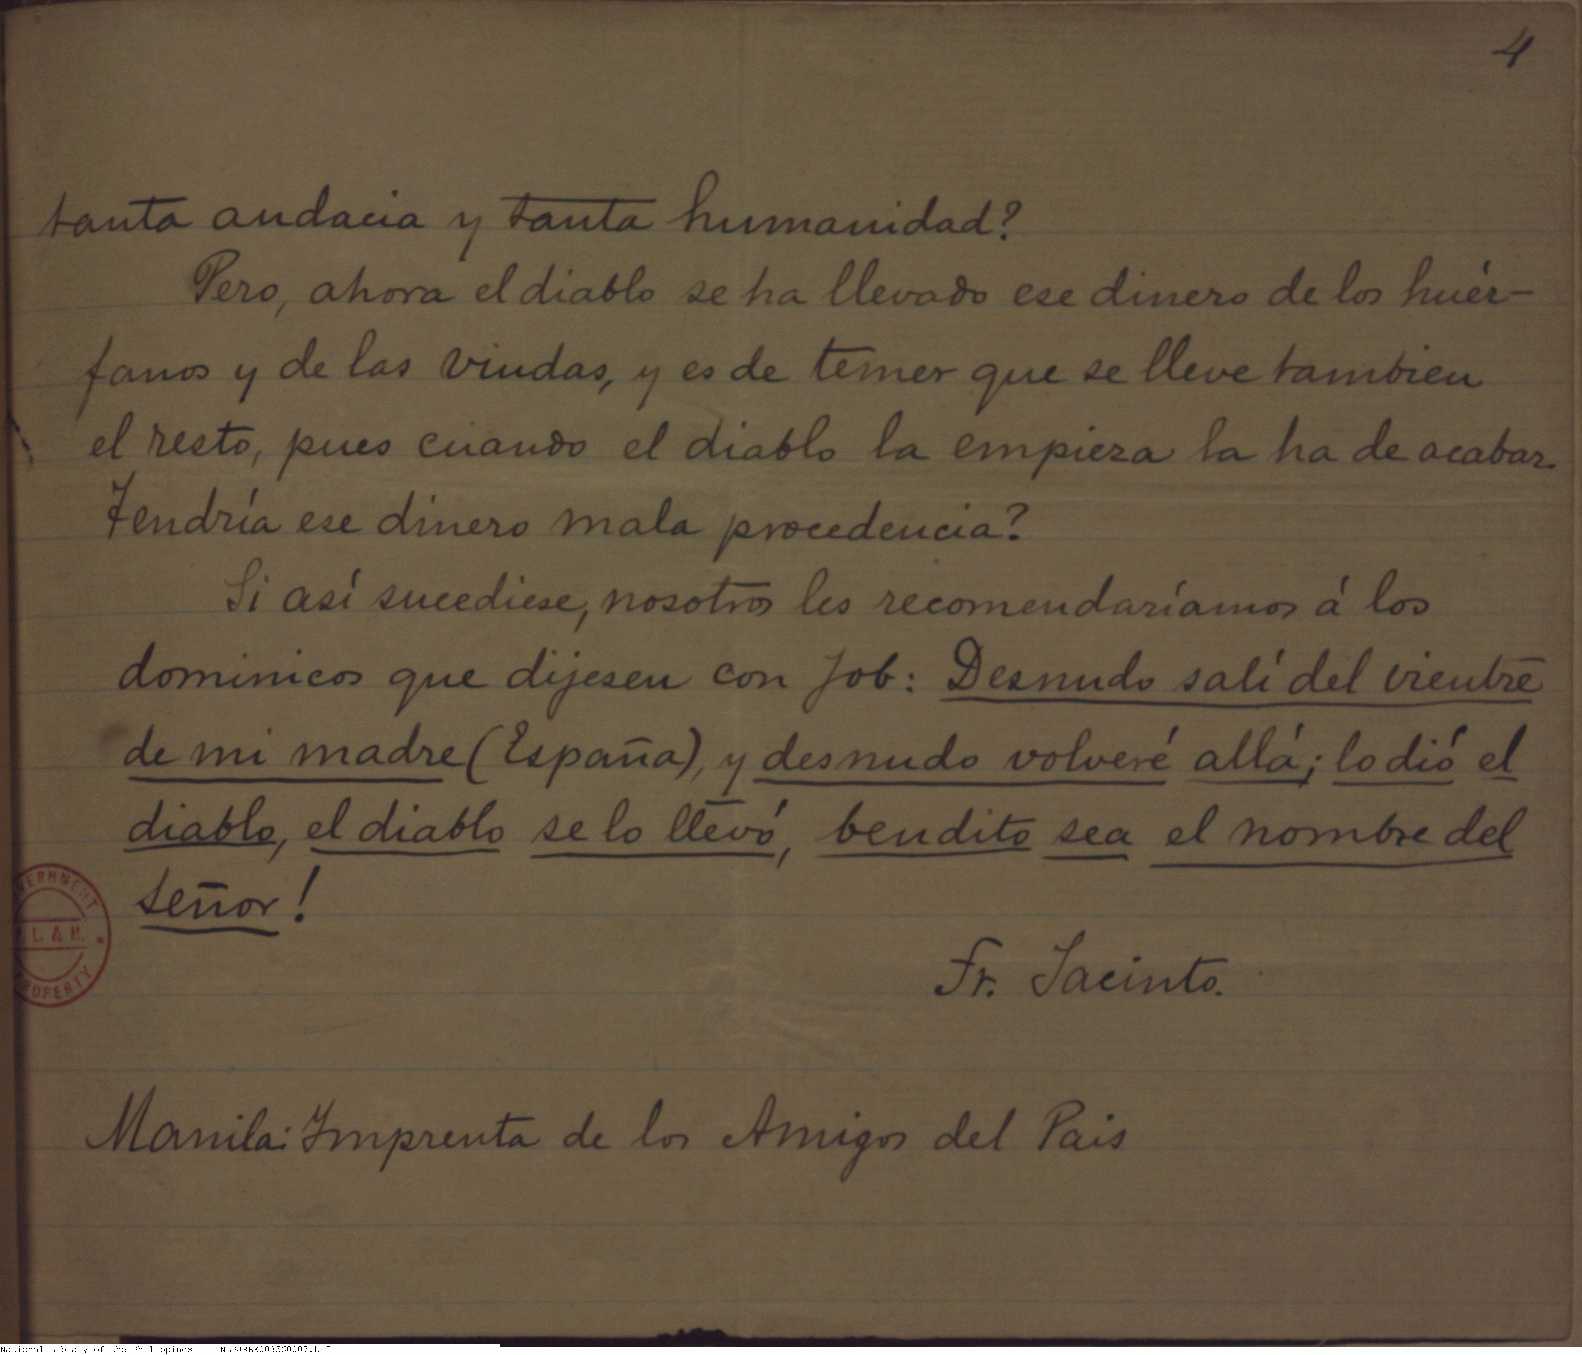 4
tanta audacia y tanta humanidad?
Pero, ahora el diablo se ha llevado ese dinero de los huér-
fanos y de las viudas, y es de temer que se lleve tambien
el resto, pues cuando el diablo la empieza la ha de acabar.
Tendría ese dinero mala procedencia?
Si así sucediese, nosotros les recomendaríamos á los
dominicos que dijesen con Job: Desnudo salí del vientre
de mi madre (España), y desnudo volveré allá; lo dió el
diablo, el diablo se lo llevó, bendito sea el nombre del
señor!
L & M.
PROPERTY
Fr. Jacinto.
Manila: Imprenta de los Amigos del Pais
National Library of the Philippines